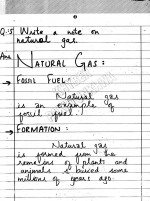 Q.5 Write a note on
natural gas.
Ans NATURAL GAS:
→ FOSSIL FUEL:
Natural gas
is an example of
fossil fuel.
→ FORMATION:
Natural gas
is formed from the
remains of plants and
animals buried some
millions of years ago.